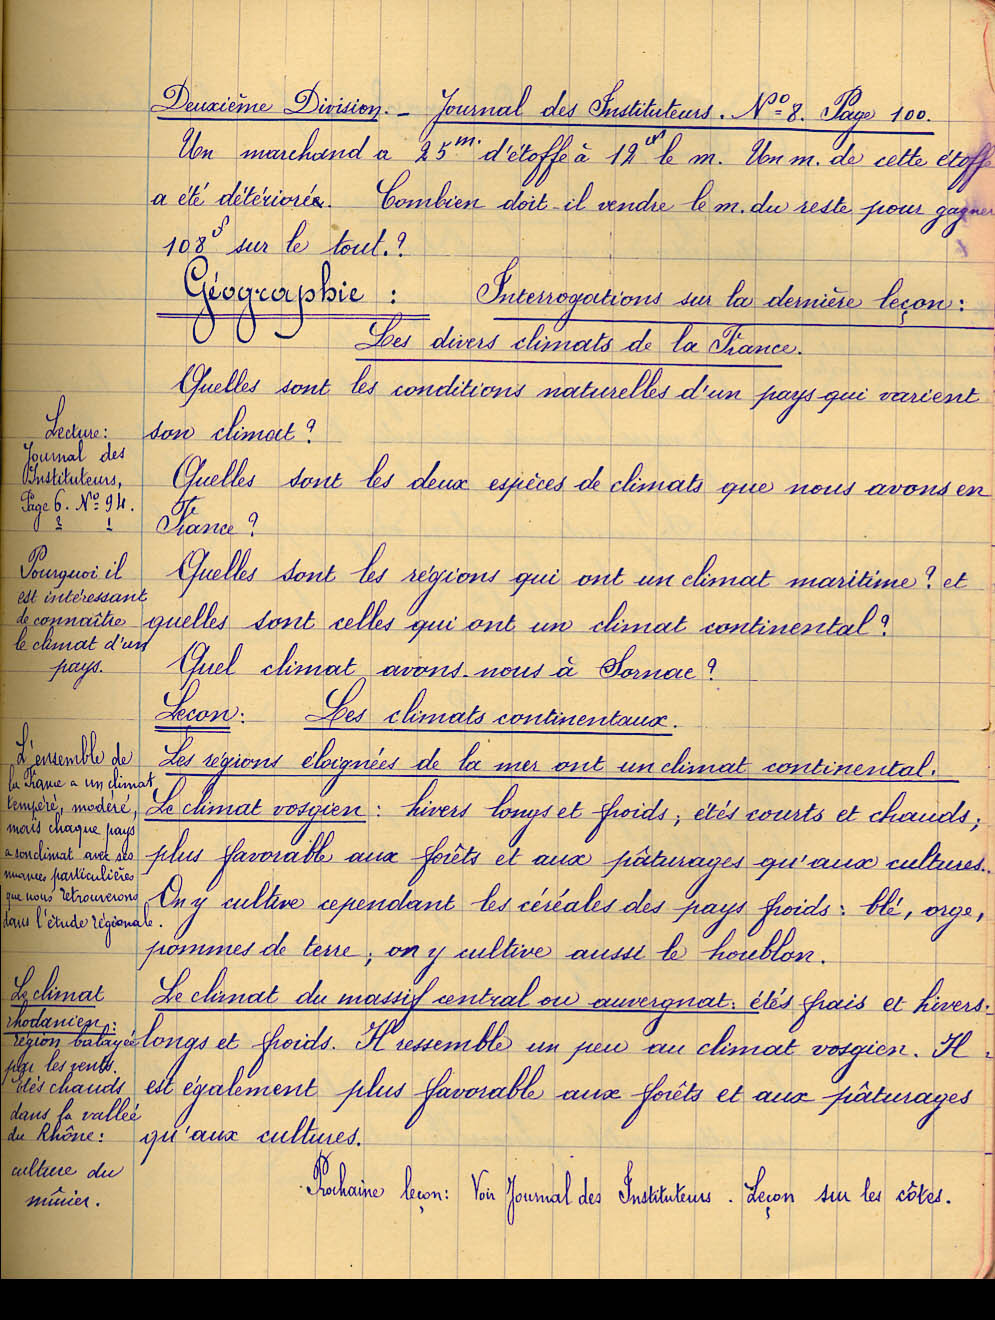 Deuxième Division. - Journal des Instituteurs. Nº 8. Page 100.
Un marchand a 25 m. d'étoffe à 12 f le m. Un m. de cette étoffe
a été détériorée. Combien doit-il vendre le m. du reste pour gagner
108 f sur le tout.?
Géographie : Interrogations sur la dernière leçon :
Les divers climats de la France.
Quelles sont les conditions naturelles d'un pays qui varient
son climat ?
Quelles sont les deux espèces de climats que nous avons en
France ?
Quelles sont les régions qui ont un climat maritime ? et
quelles sont celles qui ont un climat continental ?
Quel climat avons-nous à Sornac ?
Leçon : Les climats continentaux.
Les régions éloignées de la mer ont un climat continental.
Le climat vosgien : hivers longs et froids ; étés courts et chauds ;
plus favorable aux forêts et aux pâturages qu'aux cultures.
On y cultive cependant les céréales des pays froids : blé, orge,
pommes de terre ; on y cultive aussi le houblon.
Le climat du massif central ou auvergnat : étés frais et hivers
longs et froids. Il ressemble un peu au climat vosgien. Il
est également plus favorable aux forêts et aux pâturages
qu'aux cultures.
Prochaine leçon : Voir Journal des Instituteurs. Leçon sur les côtes.
Lecture :
Journal des
Instituteurs,
Page 6. Nº 94.
2 1
Pourquoi il
est intéressant
de connaître
le climat d'un
pays.
L'ensemble de
la France a un climat
tempéré, modéré,
mais chaque pays
a son climat avec ses
nuances particulières
que nous retrouverons
dans l'étude régionale.
Le climat
rhodanien :
région balayée
par les vents.
étés chauds
dans la vallée
du Rhône :
culture du
mûrier.